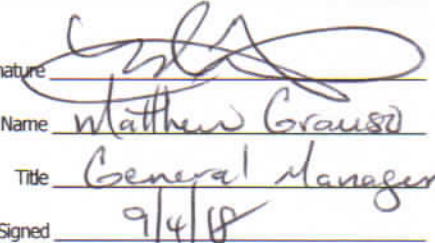 nature
Name Matthew Grauso
Title General Manager
Signed 9/4/18